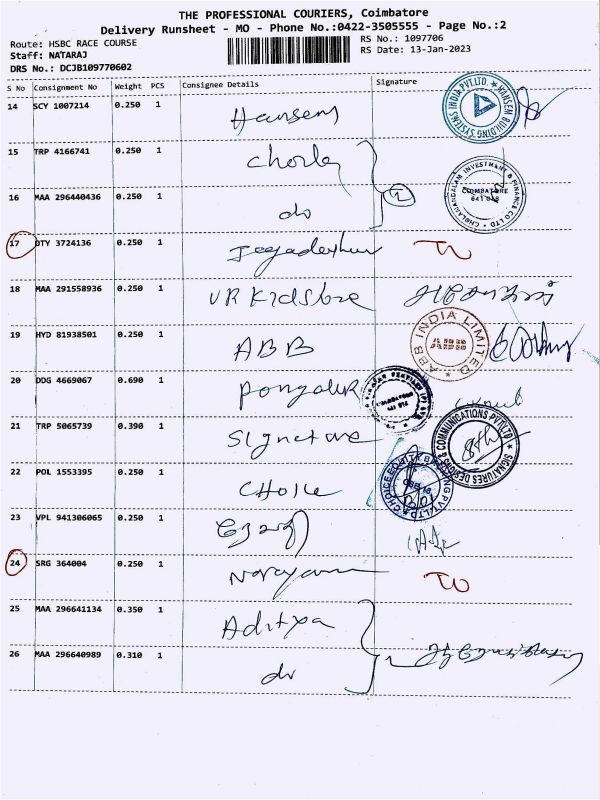 THE PROFESSIONAL COURIERS, Coimbatore
Delivery Runsheet - MO - Phone No.:0422-3505555 - Page No.:2
Route: HSBC RACE COURSE
RS No.: 1097706
Staff: NATARAJ
RS Date: 13-Jan-2023
DRS No.: DCJB109770602
S No Consignment No Weight PCS Consignee Details Signature
14 SCY 1007214 0.250 1 Hansen
HANSEN BUILDING SYSTEMS INDIA PVT.LTD.
15 TRP 4166741 0.250 1 Chola
CHOLAMANDALAM INVESTMENT & FINANCE CO LTD
COIMBATORE
641 018
16 MAA 296440436 0.250 1 do
17 DTY 3724136 0.250 1
18 MAA 291558936 0.250 1 VR Kidstore
19 HYD 81938501 0.250 1 ABB
ABB INDIA LIMITED
20 DDG 4669067 0.690 1
21 TRP 5065739 0.390 1 Signature
SIGNATURES DESIGNS & COMMUNICATIONS PVT LTD
22 POL 1553395 0.250 1 CHOICE
CHOICE EQUITY BROKING PVT LTD
23 VPL 941306065 0.250 1
24 SRG 364004 0.250 1 Narayan
25 MAA 296641134 0.350 1 Aditya
26 MAA 296640989 0.310 1 do